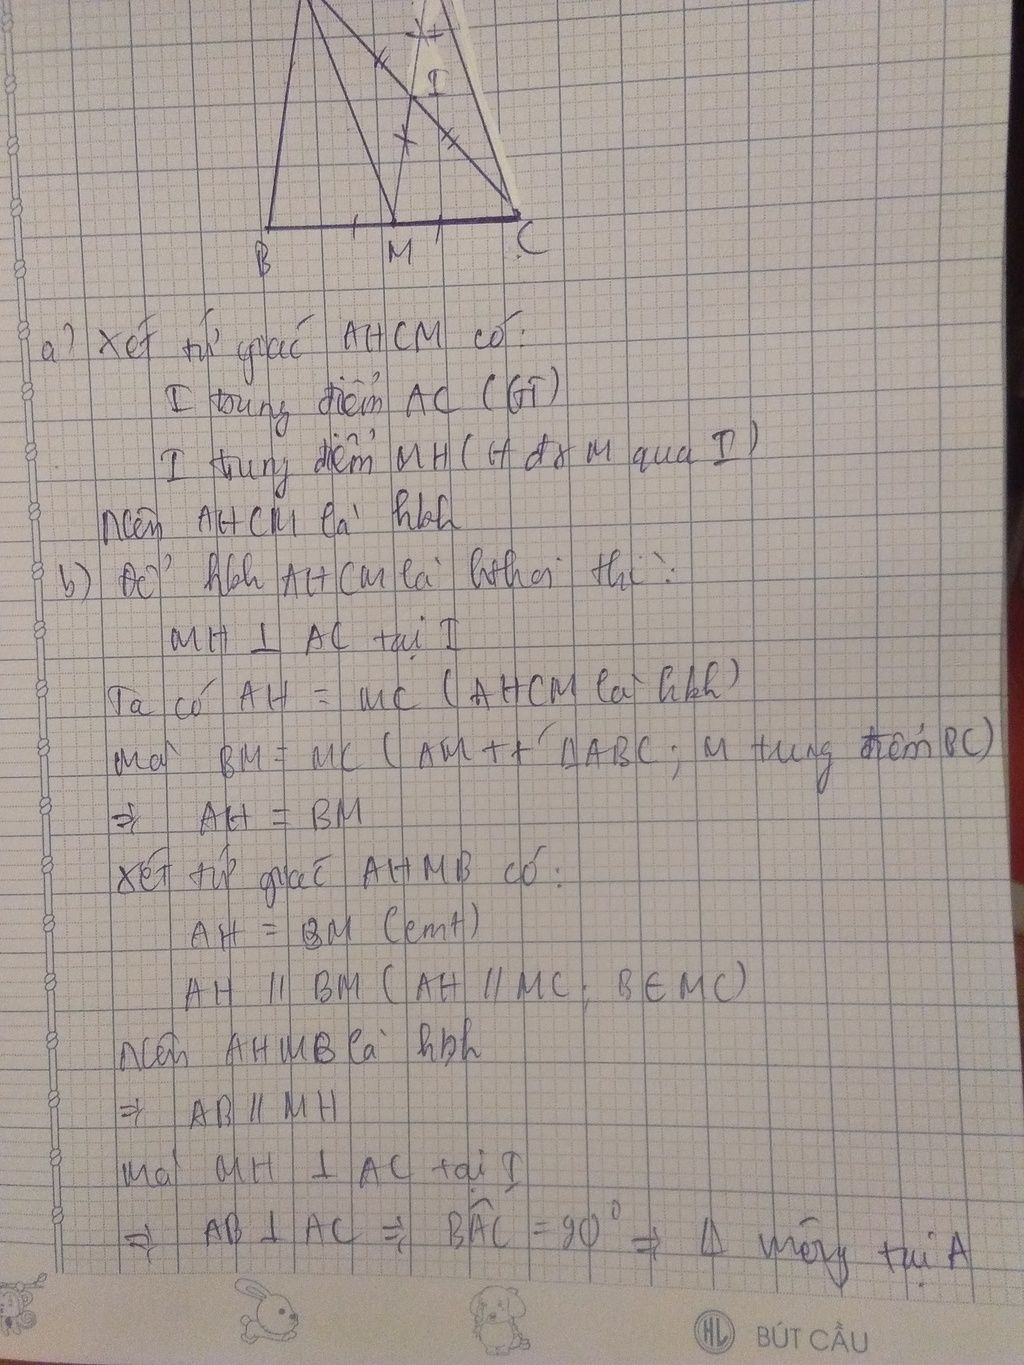 I
B M C
a) Xét tứ giác AHCM có:
I trung điểm AC (GT)
I trung điểm MH (H đx M qua I)
Nên AHCM là hbh
b) Để hbh AHCM là hthoi thì:
MH ⊥ AC tại I
Ta có AH = MC (AHCM là hbh)
mà BM = MC (AM tt ΔABC; M trung điểm BC)
⇒ AH = BM
Xét tứ giác AHMB có:
AH = BM (cmt)
AH // BM (AH // MC; B ∈ MC)
Nên AHMB là hbh
⇒ AB // MH
mà MH ⊥ AC tại I
⇒ AB ⊥ AC ⇒ BÂC = 90° ⇒ Δ vuông tại A
HL BÚT CẦU